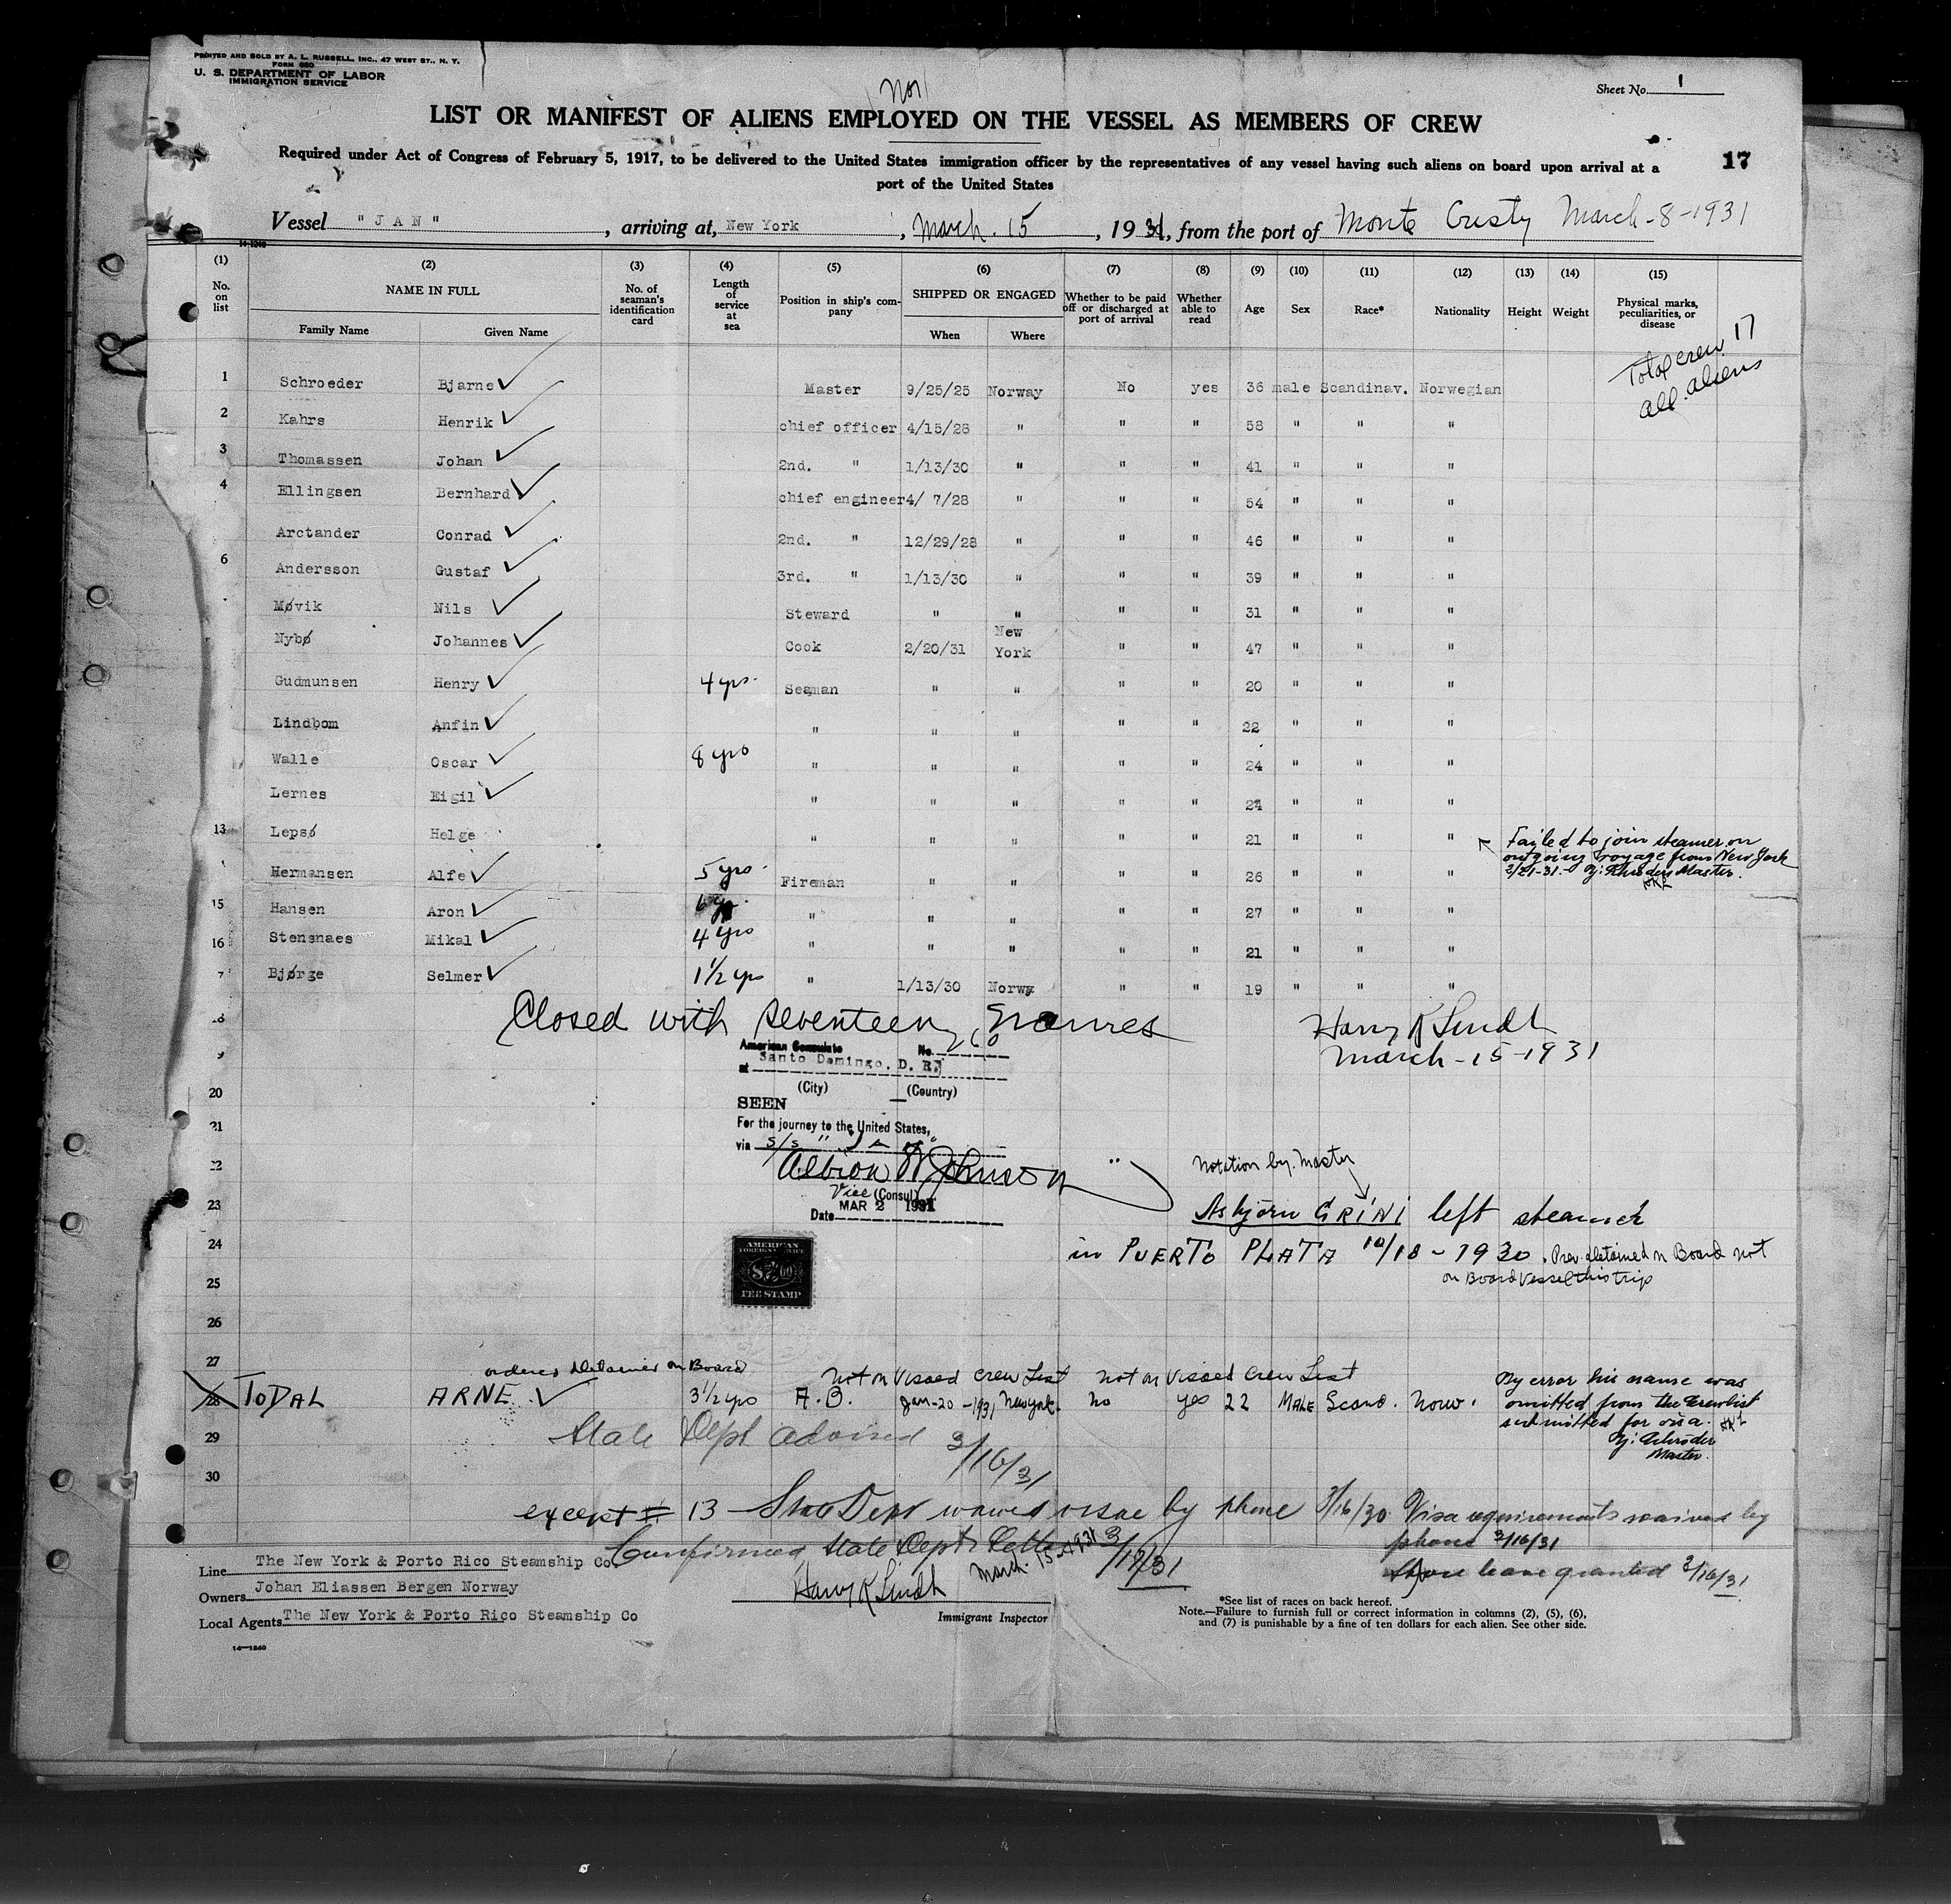 PRINTED AND SOLD BY A. L. RUSSELL, INC., 47 WEST ST., N. Y.
FORM 680
U. S. DEPARTMENT OF LABOR
IMMIGRATION SERVICE
Nor
Sheet No. 1
LIST OR MANIFEST OF ALIENS EMPLOYED ON THE VESSEL AS MEMBERS OF CREW
Required under Act of Congress of February 5, 1917, to be delivered to the United States immigration officer by the representatives of any vessel having such aliens on board upon arrival at a
port of the United States
17
Vessel "JAN", arriving at, New York, March 15, 1931, from the port of Monte Cristy March-8-1931
14-1240
(1) (2) (3) (4) (5) (6) (7) (8) (9) (10) (11) (12) (13) (14) (15)
No. on list
NAME IN FULL
Family Name Given Name
No. of seaman's identification card
Length of service at sea
Position in ship's company
SHIPPED OR ENGAGED
When Where
Whether to be paid off or discharged at port of arrival
Whether able to read
Age
Sex
Race*
Nationality
Height
Weight
Physical marks, peculiarities, or disease
Total crew 17
all aliens
1 Schroeder Bjarne Master 9/25/25 Norway No yes 36 male Scandinav. Norwegian
2 Kahrs Henrik chief officer 4/15/28 " " " 58 " " "
3 Thomassen Johan 2nd. " 1/13/30 " " " 41 " " "
4 Ellingsen Bernhard chief engineer 4/ 7/28 " " " 54 " " "
Arctander Conrad 2nd. " 12/29/28 " " " 46 " " "
6 Andersson Gustaf 3rd. " 1/13/30 " " " 39 " " "
Møvik Nils Steward " " " " 31 " " "
Nybø Johannes Cook 2/20/31 New York " " 47 " " "
Gudmunsen Henry 4 yrs. Seaman " " " " 20 " " "
Lindbom Anfin " " " " " 22 " " "
Walle Oscar 8 yrs " " " " " 24 " " "
Lernes Eigil " " " " " 24 " " "
13 Lepsø Helge " " " " " 21 " " "
Failed to join steamer on
outgoing voyage from New York
2/21-31. Master.
Hermansen Alfe 5 yrs. Fireman " " " " 26 " " "
15 Hansen Aron 6 yr. " " " " " 27 " " "
16 Stensnaes Mikal 4 yrs " " " " " 21 " " "
7 Bjørge Selmer 1 1/2 yrs " 1/13/30 Norwa " " 19 " " "
18
Closed with seventeen names
Harry K Lindt
March-15-1931
9
American Consulate No. 260
at Santo Domingo, D. R.
(City) (Country)
20
SEEN
21
For the journey to the United States,
via S/S "Jan"
22
Albion W Johnson
Vice (Consul)
23
MAR 2 1931
Date
Notation by Master
Asbjörn GRINI left steamer
24
in PUERTO PLATA 10/18-1930. Prev. detained on Board not
on Board vessel this trip
25
AMERICAN
FOREIGN SERVICE
FEE STAMP
26
27
ordered detained on Board
Not on Visaed Crew List Not on Visaed Crew List
28 TODAL ARNE 3 1/2 yrs A.B. Jan-20-1931 New York. No yes 22 MALE Scand. Norw.
By error his name was
omitted from the crewlist
submitted for visa.
Master.
29
State Dept advised 3/16/31
30
except # 13 - State Dept waived visae by phone 3/16/30 Visa requirements waived by
phone 3/16/31
Confirmed State Dept Letter 3/17/31
Shore leave granted 3/16/31
Line The New York & Porto Rico Steamship Co
Owners Johan Eliassen Bergen Norway
Local Agents The New York & Porto Rico Steamship Co
Harry K Lindt March 15-1931
Immigrant Inspector
*See list of races on back hereof.
Note.—Failure to furnish full or correct information in columns (2), (5), (6),
and (7) is punishable by a fine of ten dollars for each alien. See other side.
14—1240